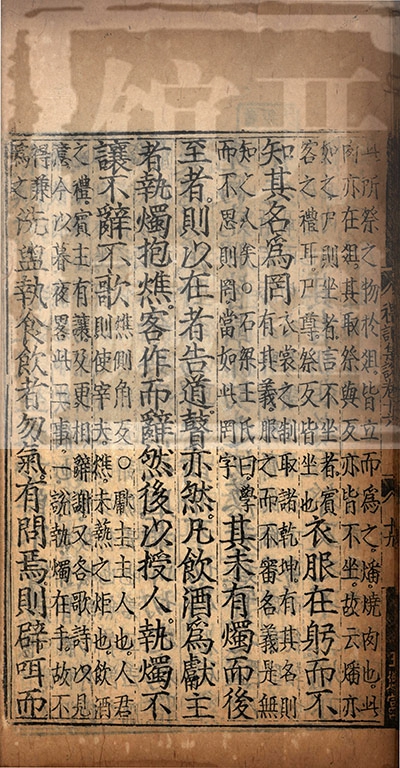 此所祭之物於俎皆立而為之燔燒肉也此
肉亦在俎其取祭與反亦皆不坐故云燔亦
如之尸則坐者言不坐者賓
客之禮耳尸尊祭反皆坐也
衣服在躬而不
知其名為罔
衣裳之制取諸乾坤有其名則
有其義服之而不審名義是無
知之人矣○石梁王氏曰學
而不思則罔當如此罔字
其未有燭而後
至者則以在者告道瞽亦然凡飲酒為獻主
者執燭抱燋客作而辭然後以授人執燭不
讓不辭不歌
燋側角反○獻主主人也人君
則使宰夫燋未爇之炬也飲酒
之禮賓主有讓及更相辭謝又各歌詩以見
意今以暮夜畧此三事一說執燭在手故不
得兼
為之
洗盥執食飲者勿氣有問焉則辟咡而